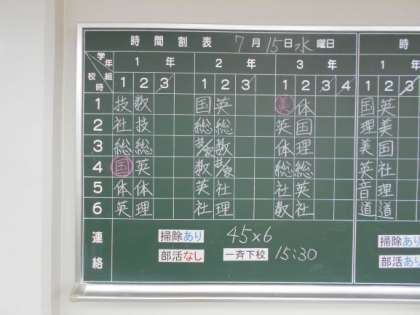 時間割表 7月15日水曜日 時
学年 組 校時 1年 2年 3年
1 2 3 1 2 3 1 2 3 4 1 2
1 技 数 国 英 美 体 国 英
2 社 技 総 総 英 国 理 美
3 総 総 数 体 理 美 国
4 国 英 数 総 総 英 社
5 体 体 英 社 社 英 音 理
6 英 理 社 理 数 社 道 道
連絡 掃除あり 45×6 掃除あ
部活なし 一斉下校 15:30 部活あ